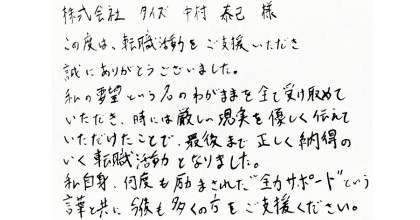 株式会社 タイズ 中村 泰己 様
この度は、転職活動をご支援いただき
誠にありがとうございました。
私の要望という名のわがままを全て受け取めて
いただき、時には厳しい現実を優しく伝えて
いただけたことで、最後まで正しく納得の
いく転職活動となりました。
私自身、何度も励まされた"全力サポート"という
言葉と共に今後も多くの方をご支援ください。